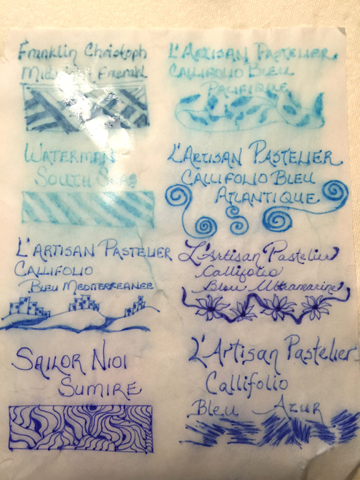 Franklin Christoph
Midnight Emerald
WATERMAN
SOUTH SEAS
L'ARTISAN PASTELIER
CALLIFOLIO
BLEU MEDITERRANEE
SAILOR NIOI
SUMIRE
L'ARTISAN PASTELIER
CALLIFOLIO BLEU
PACIFIQUE
L'ARTISAN PASTELIER
CALLIFOLIO BLEU
ATLANTIQUE
L'Artisan Pastelier
Callifolio
Bleu Ultramarine
L'Artisan Pastelier
Callifolio
Bleu Azur